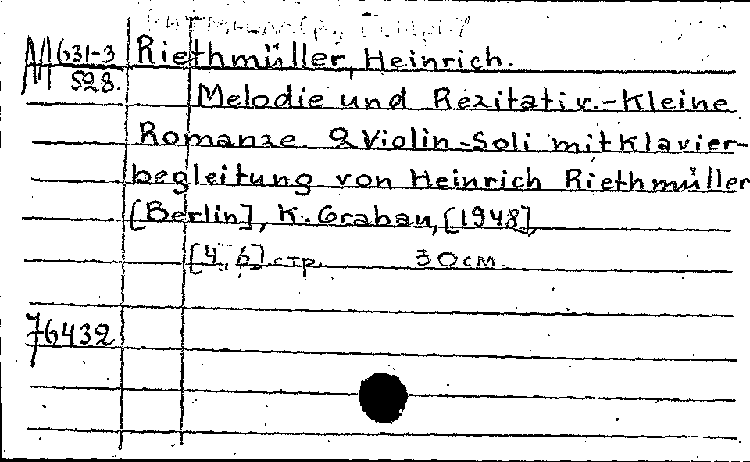 М 631-3
528.
Riethmüller, Heinrich.
Melodie und Rezitativ.-Kleine
Romanze. 2 Violin-Soli mit Klavier-
begleitung von Heinrich Riethmüller
[Berlin], K. Grabau, [1948],
[4, 6] стр. 30 см.
76432